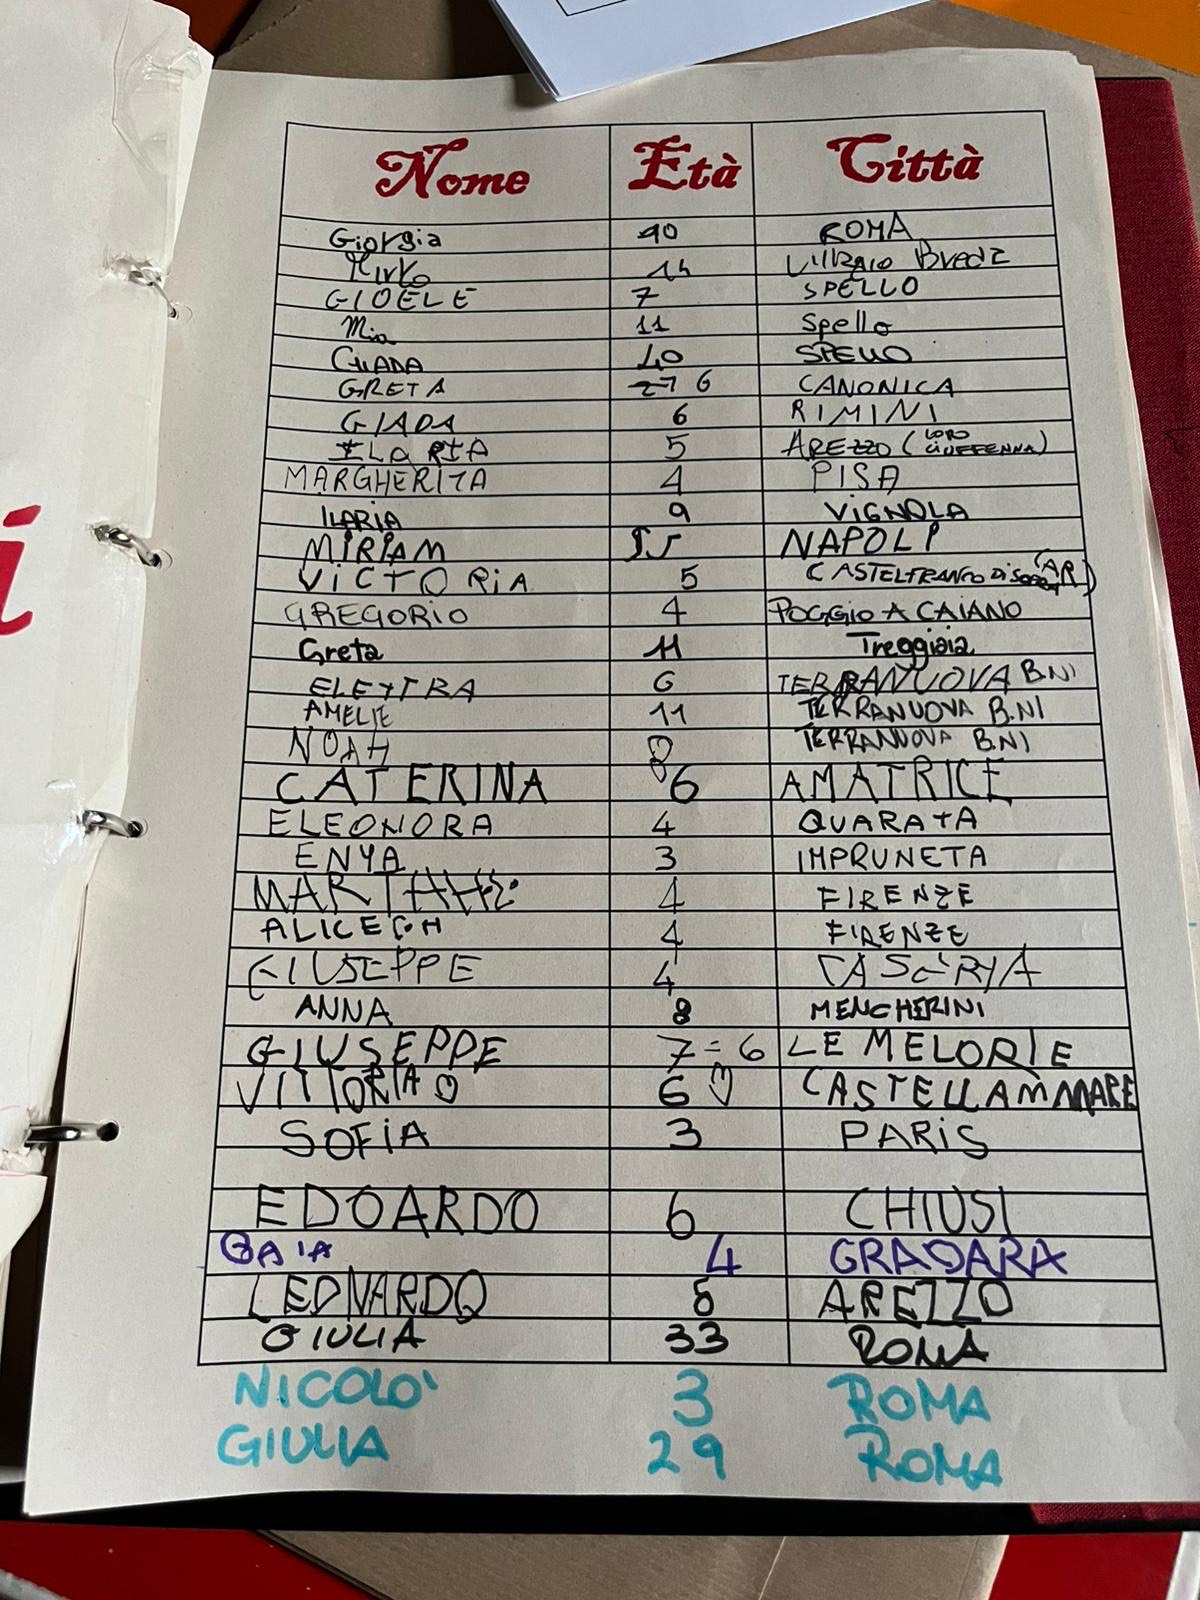 Nome Età Città
Giorgia 10 ROMA
Mirko 14 Villagio Breda
GIOELE 7 SPELLO
Mia 11 Spello
GIADA 10 SPELLO
GRETA 6 CANONICA
GIADA 6 RIMINI
ILARIA 5 AREZZO (LORO CIUFFENNA)
MARGHERITA 4 PISA
ILARIA 9 VIGNOLA
MIRIAM NAPOLI
VICTORIA 5 CASTELFRANCO DI SOPRA (AR)
GREGORIO 4 POGGIO A CAIANO
Greta 11 Treggiaia
ELEXTRA 6 TERRANUOVA B.NI
AMELIE 11 TERRANUOVA B.NI
NOAH 8 TERRANUOVA B.NI
CATERINA 6 AMATRICE
ELEONORA 4 QUARATA
ENYA 3 IMPRUNETA
4 FIRENZE
ALICE 4 FIRENZE
GIUSEPPE 4 CASERTA
ANNA 8 MENCHERINI
GIUSEPPE 7 = 6 LE MELORIE
VITTORIA 6 CASTELLAMMARE
SOFIA 3 PARIS
EDOARDO 6 CHIUSI
GAIA 4 GRADARA
LEONARDO 5 AREZZO
GIULIA 33 ROMA
NICOLO' 3 ROMA
GIULIA 29 ROMA